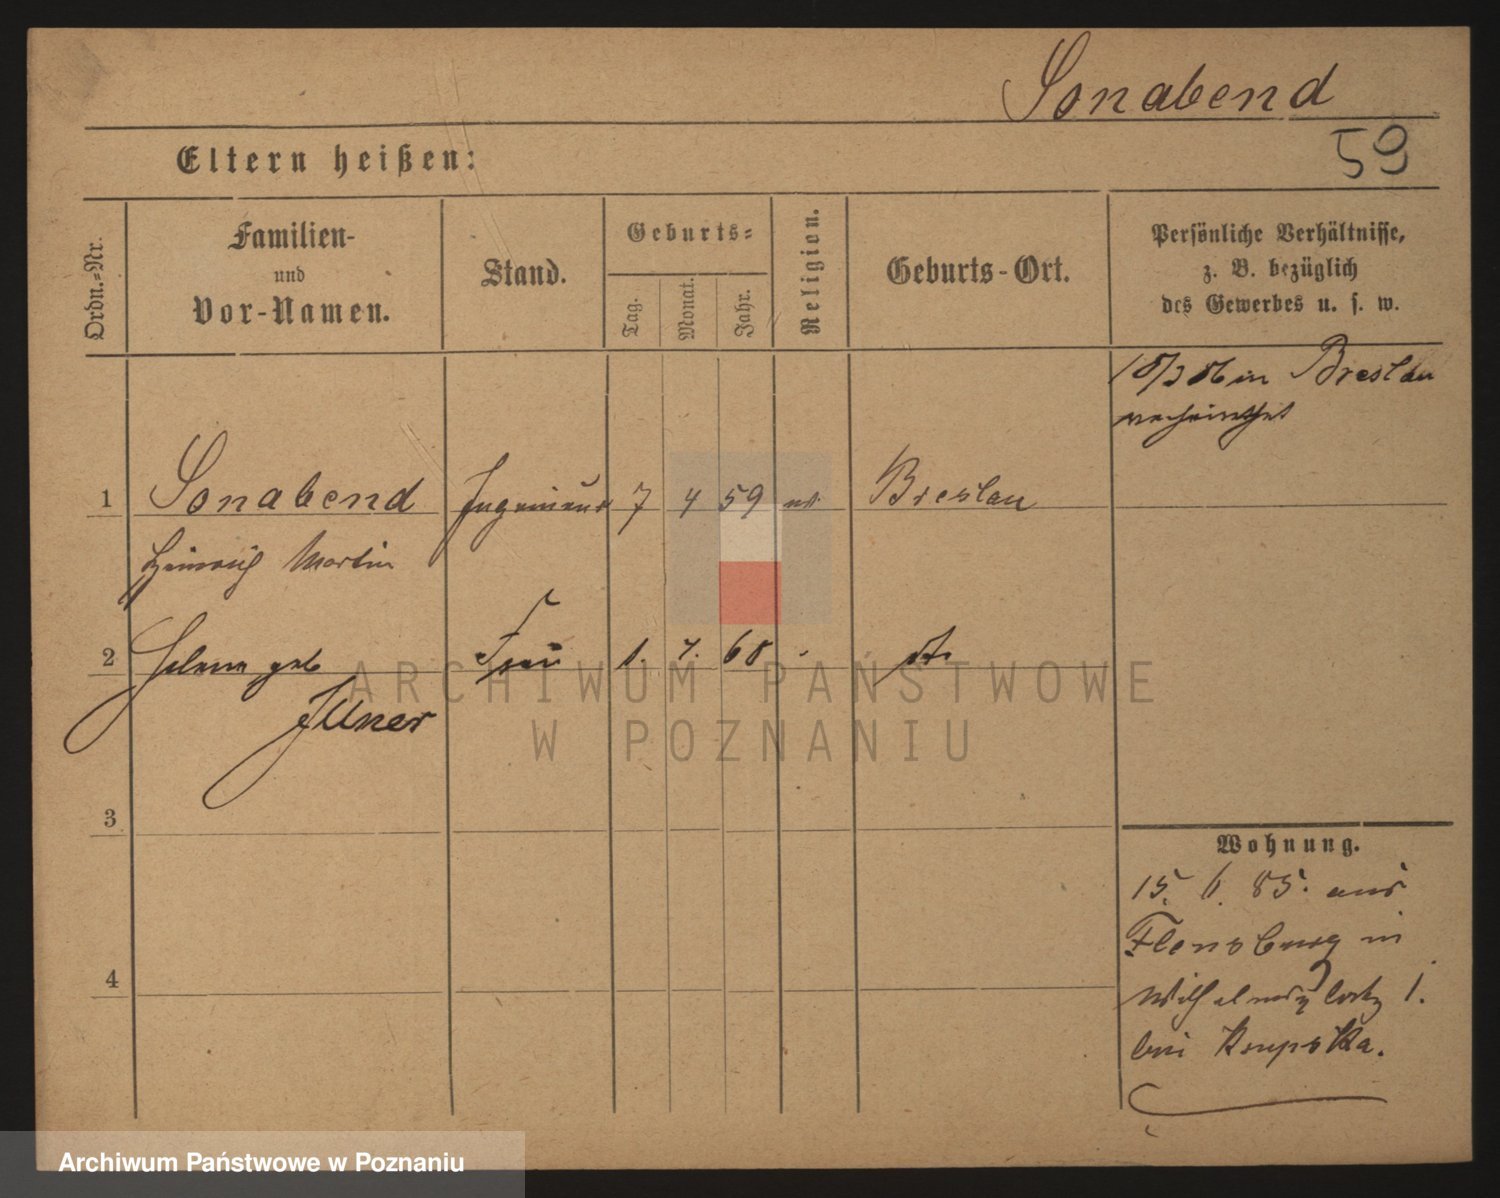 Sonabend
59
Eltern heißen:
Ordn.-Nr.
Familien-
und
Vor-Namen.
Stand.
Geburts-
Tag.
Monat.
Jahr.
Religion.
Geburts-Ort.
Persönliche Verhältnisse,
z. B. bezüglich
des Gewerbes u. s. w.
18/3 86 in Breslau
verheirathet
1 Sonabend Ingenieur 7 4 59 Breslau
Heinrich Martin
2 Helene geb Frau 1. 7. 68
Illner
3
4
Wohnung.
15. 6. 85. aus
Flensburg in
Wilhelmsplatz 1.
bei Krupska.
ARCHIWUM PAŃSTWOWE
W POZNANIU
Archiwum Państwowe w Poznaniu